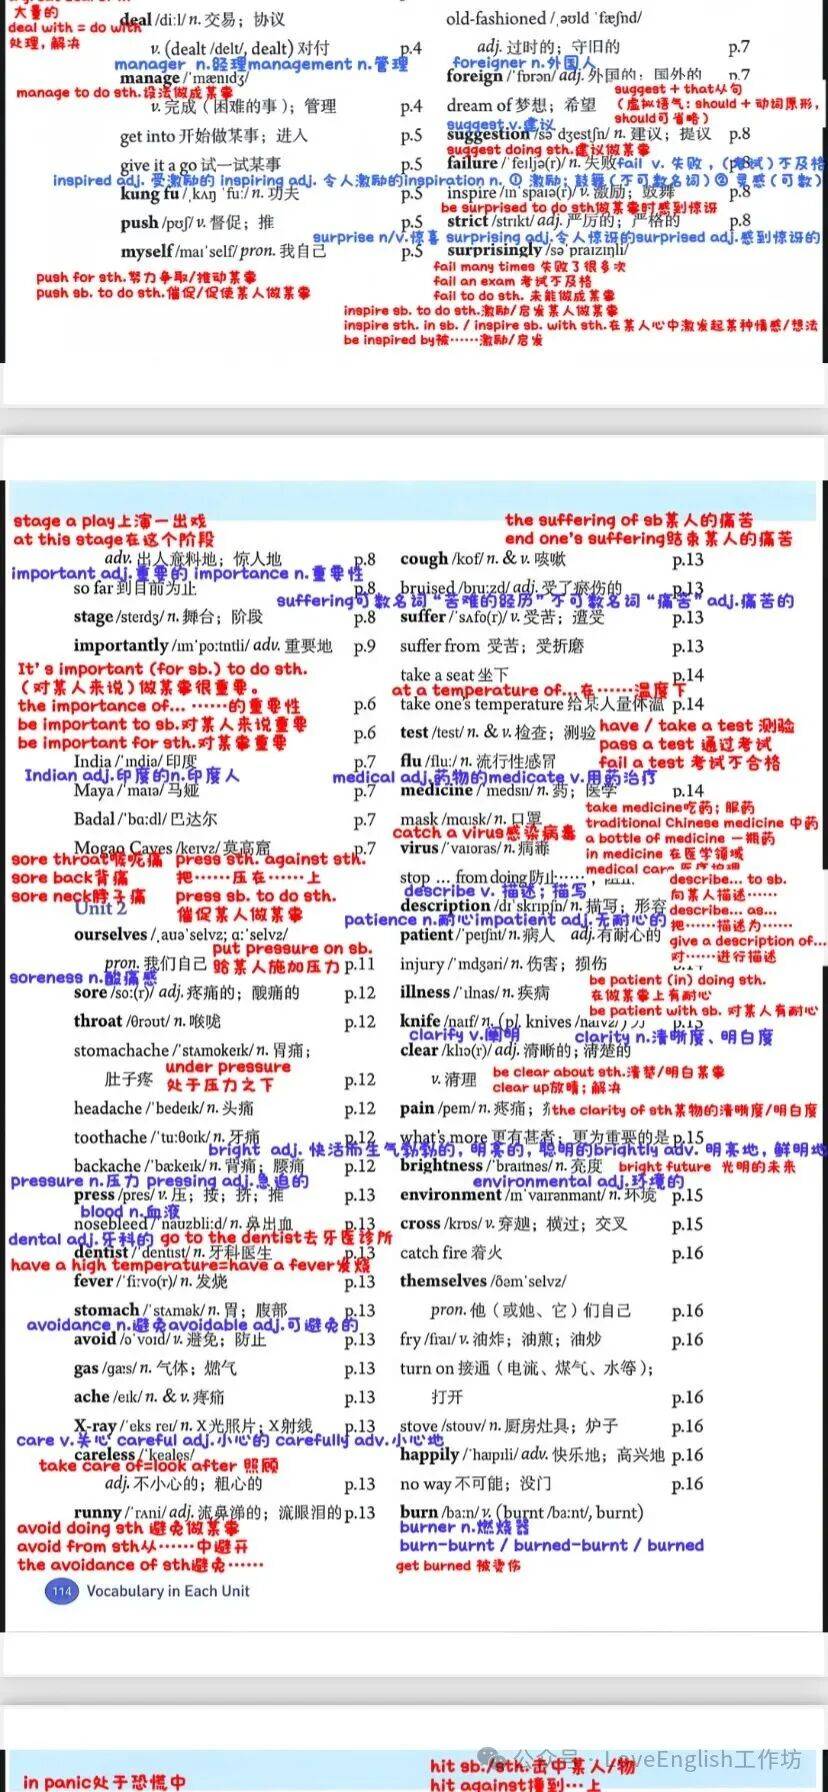 大量的
deal /diːl/ n. 交易；协议
deal with = do with
处理，解决
v. (dealt /delt/, dealt) 对付 p.4
manager n.经理management n.管理
manage /ˈmænɪdʒ/
manage to do sth.设法做成某事
v. 完成（困难的事）；管理 p.4
get into 开始做某事；进入 p.5
give it a go 试一试某事 p.5
kung fu /ˌkʌŋ ˈfuː/ n. 功夫 p.5
push /pʊʃ/ v. 督促；推 p.5
myself /maɪˈself/ pron. 我自己 p.5
push for sth.努力争取/推动某事
push sb. to do sth.催促/促使某人做某事
old-fashioned /ˌəʊld ˈfæʃnd/
adj. 过时的；守旧的 p.7
foreigner n.外国人
foreign /ˈfɒrən/ adj. 外国的；国外的 p.7
suggest + that从句
（虚拟语气：should + 动词原形，
should可省略）
dream of 梦想；希望
suggest v.建议
suggestion /səˈdʒestʃn/ n. 建议；提议 p.8
suggest doing sth.建议做某事
failure /ˈfeɪljə(r)/ n. 失败 p.8
fail v. 失败，（考试）不及格
inspired adj. 受激励的 inspiring adj. 令人激励的inspiration n. ① 激励；鼓舞（不可数名词）② 灵感（可数）
inspire /ɪnˈspaɪə(r)/ v. 激励；鼓舞 p.8
be surprised to do sth做某事时感到惊讶
strict /strɪkt/ adj. 严厉的；严格的 p.8
surprise n/v.惊喜 surprising adj.令人惊讶的surprised adj.感到惊讶的
surprisingly /səˈpraɪzɪŋli/
fail many times 失败了很多次
fail an exam 考试不及格
fail to do sth. 未能做成某事
inspire sb. to do sth.激励/启发某人做某事
inspire sth. in sb. / inspire sb. with sth.在某人心中激发起某种情感/想法
be inspired by被……激励/启发
stage a play上演一出戏
at this stage在这个阶段
adv. 出人意料地；惊人地 p.8
important adj.重要的 importance n.重要性
so far 到目前为止 p.8
stage /steɪdʒ/ n. 舞台；阶段 p.8
importantly /ɪmˈpɔːtntli/ adv. 重要地 p.9
It's important (for sb.) to do sth.
（对某人来说）做某事很重要。
the importance of... ……的重要性 p.6
be important to sb.对某人来说重要
be important for sth.对某事重要 p.6
India /ˈɪndiə/ 印度 p.7
Indian adj.印度的n.印度人
Maya /ˈmaɪə/ 马娅 p.7
Badal /ˈbɑːdl/ 巴达尔 p.7
Mogao Caves /keɪvz/ 莫高窟 p.7
sore throat喉咙痛 press sth. against sth.
sore back背痛 把……压在……上
sore neck脖子痛 press sb. to do sth.
催促某人做某事
Unit 2
ourselves /ˌaʊəˈselvz; ɑːˈselvz/
put pressure on sb.
pron. 我们自己 给某人施加压力 p.11
soreness n.酸痛感
sore /sɔː(r)/ adj. 疼痛的；酸痛的 p.12
throat /θrəʊt/ n. 喉咙 p.12
stomachache /ˈstʌməkeɪk/ n. 胃痛；
under pressure
肚子疼 处于压力之下 p.12
headache /ˈhedeɪk/ n. 头痛 p.12
toothache /ˈtuːθeɪk/ n. 牙痛 p.12
backache /ˈbækeɪk/ n. 背痛；腰痛 p.12
pressure n.压力 pressing adj.急迫的
press /pres/ v. 压；按；挤；推 p.13
blood n.血液
nosebleed /ˈnəʊzbliːd/ n. 鼻出血 p.13
dental adj.牙科的 go to the dentist去牙医诊所
dentist /ˈdentɪst/ n. 牙科医生 p.13
have a high temperature=have a fever发烧
fever /ˈfiːvə(r)/ n. 发烧 p.13
stomach /ˈstʌmək/ n. 胃；腹部 p.13
avoidance n.避免avoidable adj.可避免的
avoid /əˈvɔɪd/ v. 避免；防止 p.13
gas /ɡæs/ n. 气体；燃气 p.13
ache /eɪk/ n. & v. 疼痛 p.13
X-ray /ˈeks reɪ/ n. X光照片；X射线 p.13
care v.关心 careful adj.小心的 carefully adv.小心地
careless /ˈkeələs/
take care of=look after 照顾
adj. 不小心的；粗心的 p.13
runny /ˈrʌni/ adj. 流鼻涕的；流眼泪的 p.13
avoid doing sth 避免做某事
avoid from sth从……中避开
the avoidance of sth避免……
114 Vocabulary in Each Unit
the suffering of sb某人的痛苦
end one's suffering结束某人的痛苦
cough /kɒf/ n. & v. 咳嗽 p.13
bruised /bruːzd/ adj. 受了瘀伤的 p.13
suffering可数名词“苦难的经历”不可数名词“痛苦”adj.痛苦的
suffer /ˈsʌfə(r)/ v. 受苦；遭受 p.13
suffer from 受苦；受折磨 p.13
take a seat 坐下 p.14
at a temperature of...在……温度下
take one's temperature 给某人量体温 p.14
test /test/ n. & v. 检查；测验
have / take a test 测验
pass a test 通过考试
fail a test 考试不合格
flu /fluː/ n. 流行性感冒
medical adj.药物的medicate v.用药治疗
medicine /ˈmedsn/ n. 药；医学 p.14
take medicine吃药；服药
traditional Chinese medicine 中药
a bottle of medicine 一瓶药
in medicine 在医学领域
medical care
mask /mɑːsk/ n. 口罩
catch a virus感染病毒
virus /ˈvaɪrəs/ n. 病毒
stop … from doing 防止……，阻止
describe v. 描述；描写
describe... to sb.
向某人描述……
describe... as...
把……描述为……
give a description of...
对……进行描述
description /dɪˈskrɪpʃn/ n. 描写；形容
patience n.耐心impatient adj.无耐心的
patient /ˈpeɪʃnt/ n. 病人 adj. 有耐心的
injury /ˈɪndʒəri/ n. 伤害；损伤 p.14
illness /ˈɪlnəs/ n. 疾病
be patient (in) doing sth.
在做某事上有耐心
be patient with sb. 对某人有耐心
knife /naɪf/ n. (pl. knives /naɪvz/) 刀 p.15
clarify v.阐明 clarity n.清晰度、明白度
clear /klɪə(r)/ adj. 清晰的；清楚的
v. 清理 be clear about sth.清楚/明白某事
clear up放晴；解决
pain /peɪn/ n. 疼痛；
the clarity of sth某物的清晰度/明白度
what's more 更有甚者；更为重要的是 p.15
bright adj. 快活而生气勃勃的，明亮的，聪明的brightly adv. 明亮地，鲜明地
brightness /ˈbraɪtnəs/ n. 亮度 bright future 光明的未来
environmental adj.环境的
environment /ɪnˈvaɪrənmənt/ n. 环境 p.15
cross /krɒs/ v. 穿越；横过；交叉 p.15
catch fire 着火 p.16
themselves /ðəmˈselvz/
pron. 他（或她、它）们自己 p.16
fry /fraɪ/ v. 油炸；油煎；油炒 p.16
turn on 接通（电流、煤气、水等）；
打开 p.16
stove /stəʊv/ n. 厨房灶具；炉子 p.16
happily /ˈhæpɪli/ adv. 快乐地；高兴地 p.16
no way 不可能；没门 p.16
burn /bɜːn/ v. (burnt /bɜːnt/, burnt)
burner n.燃烧器
burn-burnt / burned-burnt / burned
get burned 被烫伤
公众号 · LoveEnglish工作坊
in panic处于恐慌中
hit sb./sth.击中某人/物
hit against撞到…上